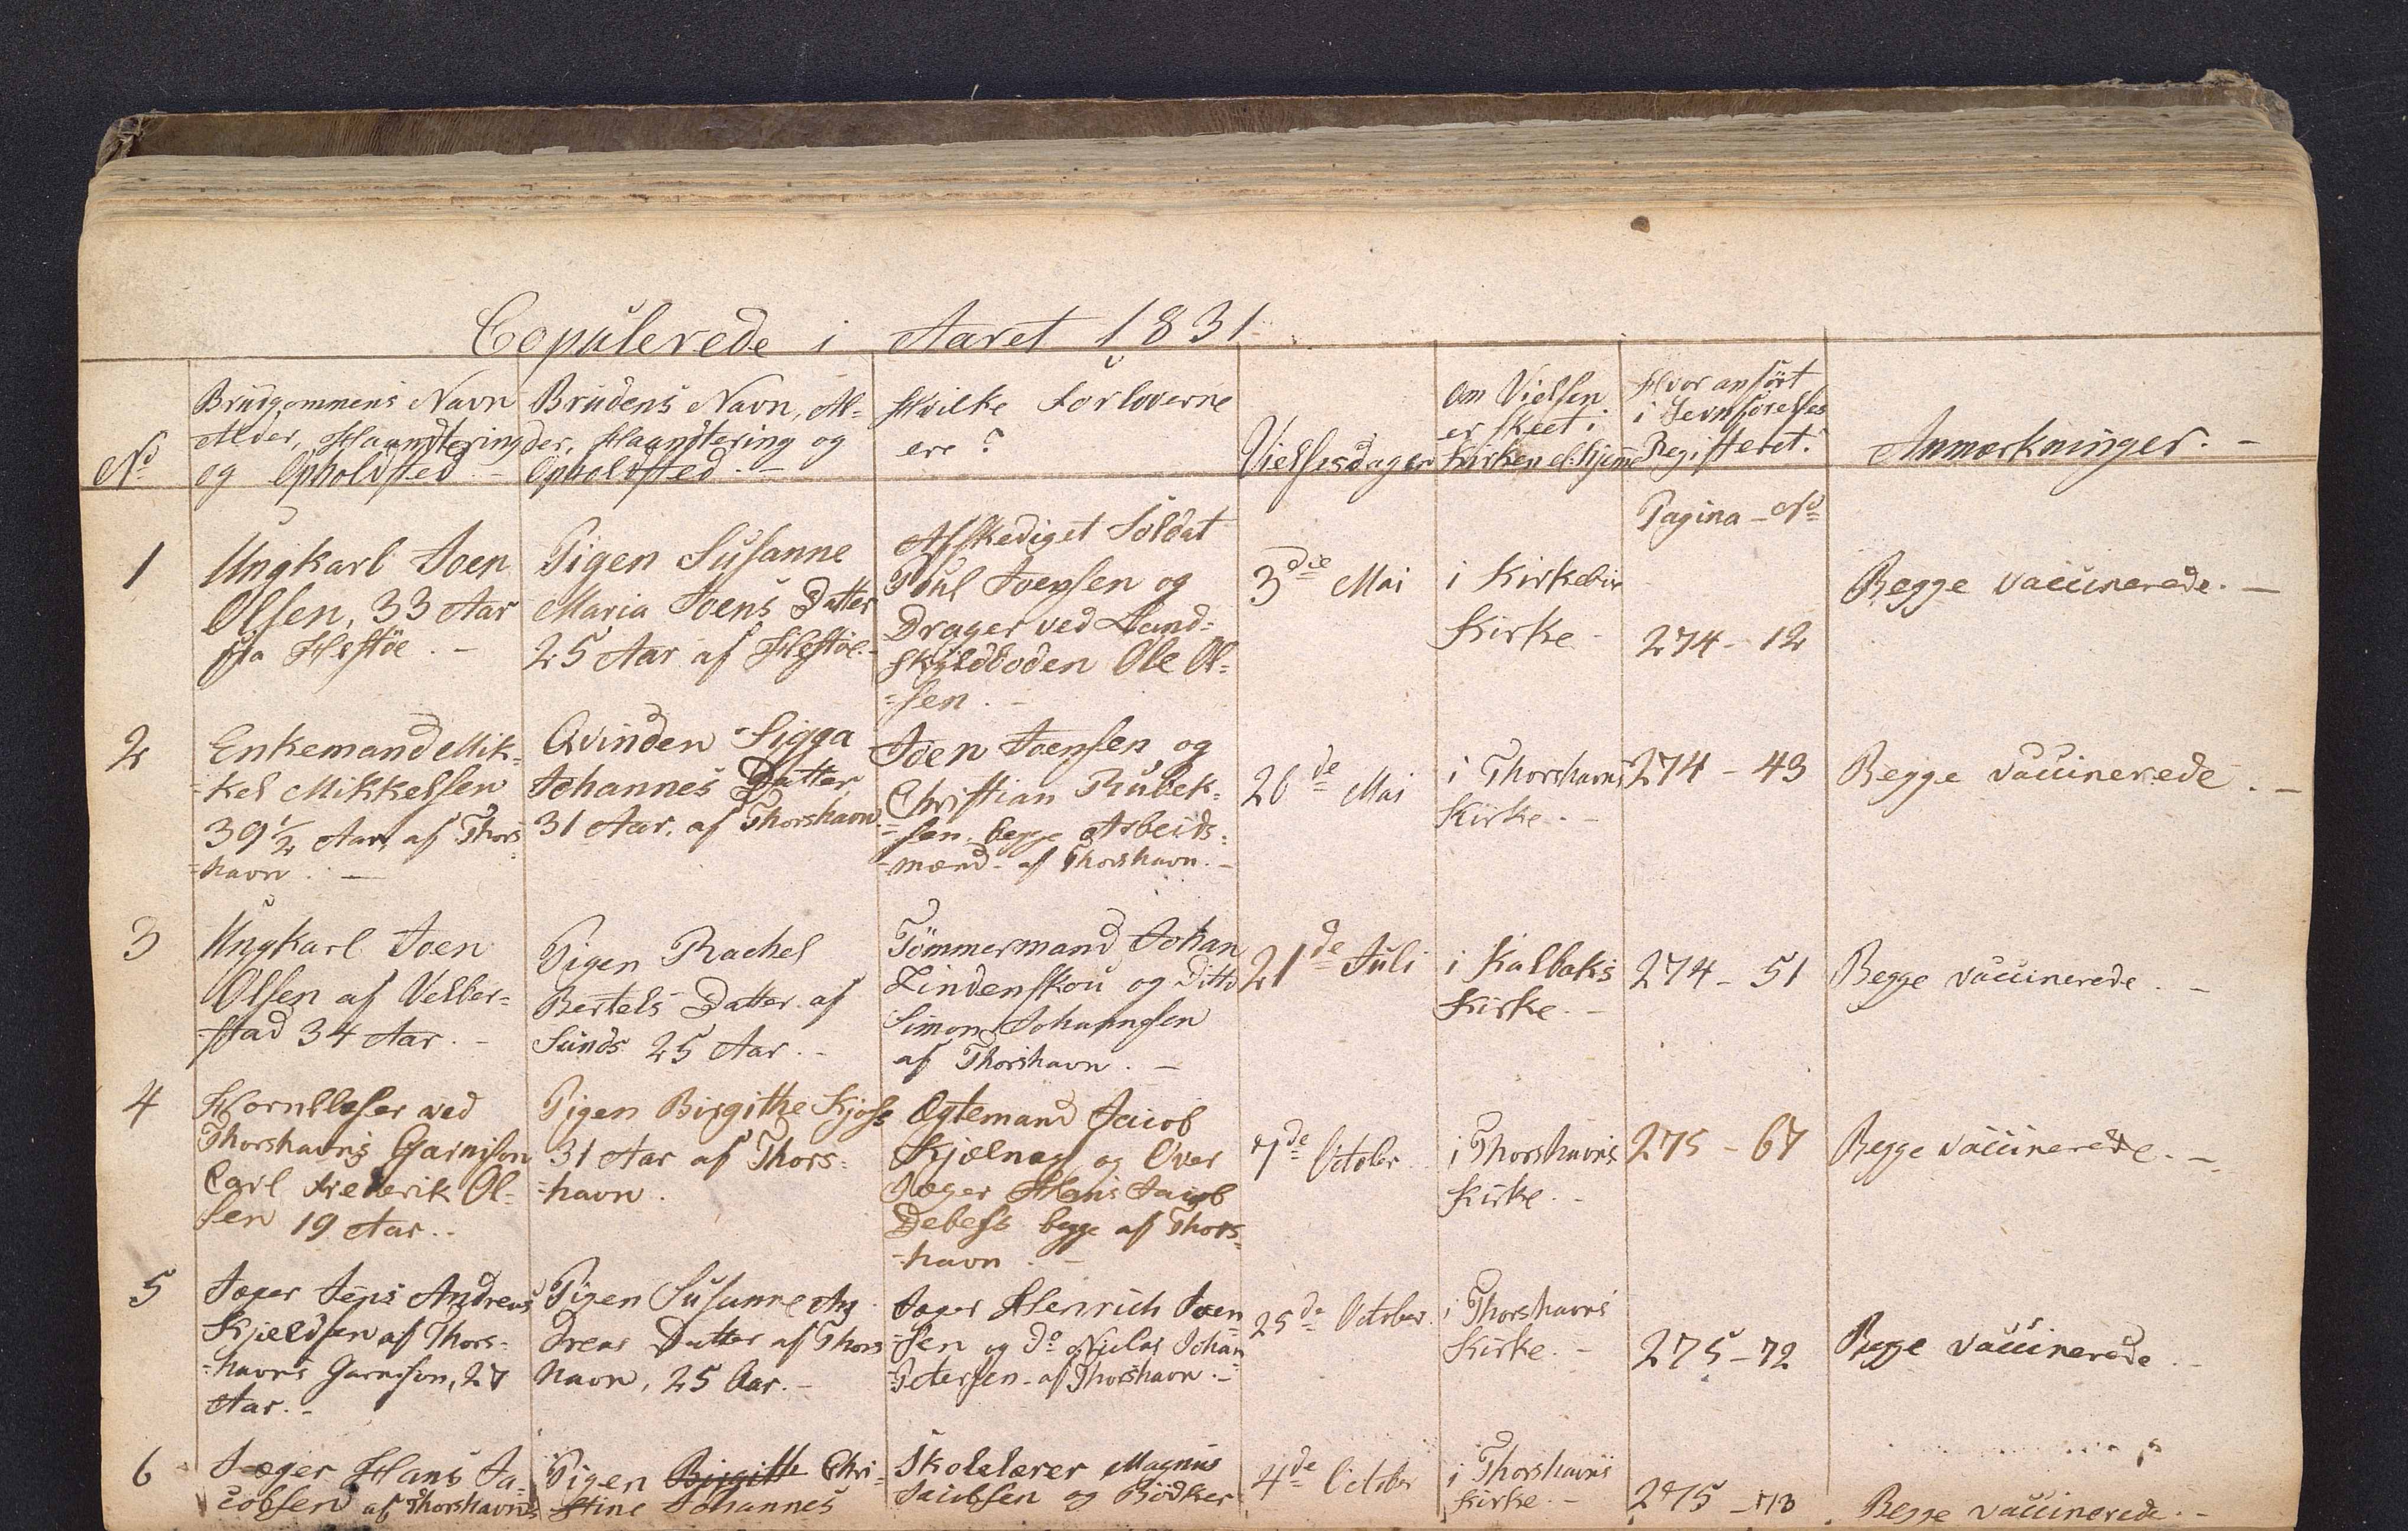 Copulerede i Aaret 1831
No
Brudgommens Navn
Alder, Haandtering
og Opholdsted -
Brudens Navn, Al-
der, Haandtering og
Opholdsted. -
Hvilke Forloverne
ere?
Vielsesdagen
Om Vielsen
er skeet i
Kirken el. Hjeme
Hvor anført
i Jevnførelses
Registeret.
Anmærkninger. -
Pagina - No
1
Ungkarl Joen
Olsen, 33 Aar
fra Hestøe. -
Pigen Susanne
Maria Joens Datter
25 Aar af Hestøe. -
Afskediget Soldat
Poul Joensen og
Drager ved Land-
skyldboden Ole Ol-
-sen. -
3die Mai
i Kirkebøe
Kirke -
274 - 12
Begge vaccinerede. -
2
Enkemand Mik-
-kel Mikkelsen
39 1/2 Aar, af Thors-
-havn. -
Qvinden Sigga
Johannes Datter
31 Aar, af Thorshavn
Joen Joensen og
Christian Rubek-
-sen, begge Arbeids-
-mænd af Thorshavn. -
26de Mai
i Thorshavns
Kirke. -
274 - 43
Begge vaccinerede. -
3
Ungkarl Joen
Olsen af Velber-
-stad 34 Aar. -
Pigen Rachel
Bertels Datter af
Sunds 25 Aar. -
Tömmermand Johan
Lindenskou og Ditto
Simon Johannsen
af Thorshavn. -
21de Juli
i Kalbaks
Kirke. -
274 - 51
Begge vaccinerede. -
4
Hornblæser ved
Thorshavns Garnison
Carl Frederik Ol-
sen 19 Aar. -
Pigen Birgithe
31 Aar af Thors-
-havn.
Ægtemand Jacob
Kjælnæs og Over
Jæger Hans Jacob
Debess begge af Thors-
-havn. -
7de October
i Thorshavns
Kirke. -
275 - 67
Begge vaccinerede. -
5
Jæger Jens Andreas
Kjeldsen af Thors-
-havns Garnison, 27
Aar. -
Pigen Susanne An-
dreas Datter af Thors
havn, 25 Aar. -
Jæger Henrich Joen
-sen og do Niclas Johan
Petersen af Thorshavn. -
25de October.
i Thorshavns
Kirke. -
275 - 72
Begge vaccinerede. -
6
Jæger Hans Ja-
cobsen af Thorshavns
Pigen Birgitte Chri-
stine Johannes
Skolelærer Magnus
Jacobsen og Bödker
4de October
i Thorshavns
Kirke. -
275 - 73
Begge vaccinerede. -